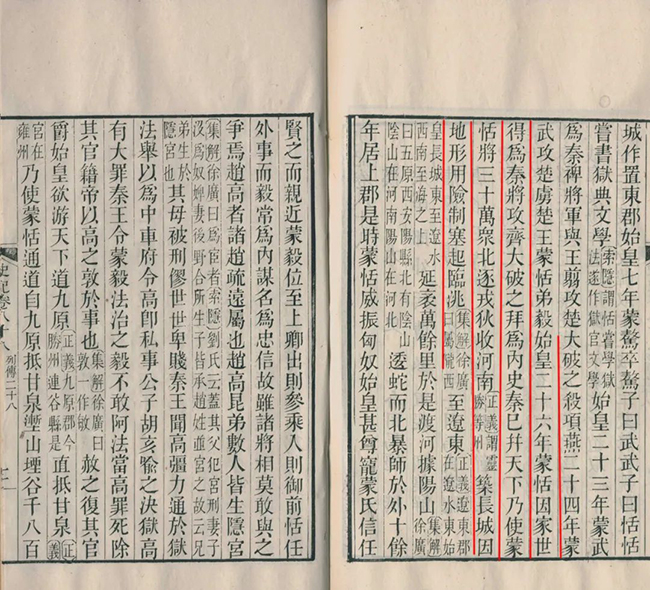 城作置東郡始皇七年蒙驁卒驁子曰武武子曰恬恬
嘗書獄典文學索隱謂恬嘗學獄法遂作獄官文學始皇二十三年蒙武
爲秦裨將軍與王翦攻楚大破之殺項燕二十四年蒙
武攻楚虜楚王蒙恬弟毅始皇二十六年蒙恬因家世
得爲秦將攻齊大破之拜爲内史秦已幷天下乃使蒙
恬將三十萬衆北逐戎狄收河南正義謂靈勝等州築長城因
地形用險制塞起臨洮集解徐廣曰屬隴西至遼東正義遼東郡在遼水東始
皇長城東至遼水西南至海之上延袤萬餘里於是渡河據陽山集解徐廣
曰五原西安陽縣北有陰山陰山在河南陽山在河北逶蛇而北暴師於外十餘
年居上郡是時蒙恬威振匈奴始皇甚尊寵蒙氏信任
賢之而親近蒙毅位至上卿出則參乘入則御前恬任
外事而毅常爲内謀名爲忠信故雖諸將相莫敢與之
爭焉趙高者諸趙疏遠屬也趙高昆弟數人皆生隱宮
集解徐廣曰爲宦者索隱劉氏云蓋其父犯宮刑妻子沒爲奴婢妻後野合所生子皆承趙姓並宮之故云兄
弟生於隱宮也其母被刑僇世世卑賤秦王聞高彊力通於獄
法舉以爲中車府令高卽私事公子胡亥喻之決獄高
有大罪秦王令蒙毅法治之毅不敢阿法當高罪死除
其官籍帝以高之敦於事也集解徐廣曰敦一作敏赦之復其官
爵始皇欲游天下道九原正義九原郡今勝州連谷縣是直抵甘泉正義
宮在雍州乃使蒙恬通道自九原抵甘泉壍山堙谷千八百
史記卷八十八
列傳二十八